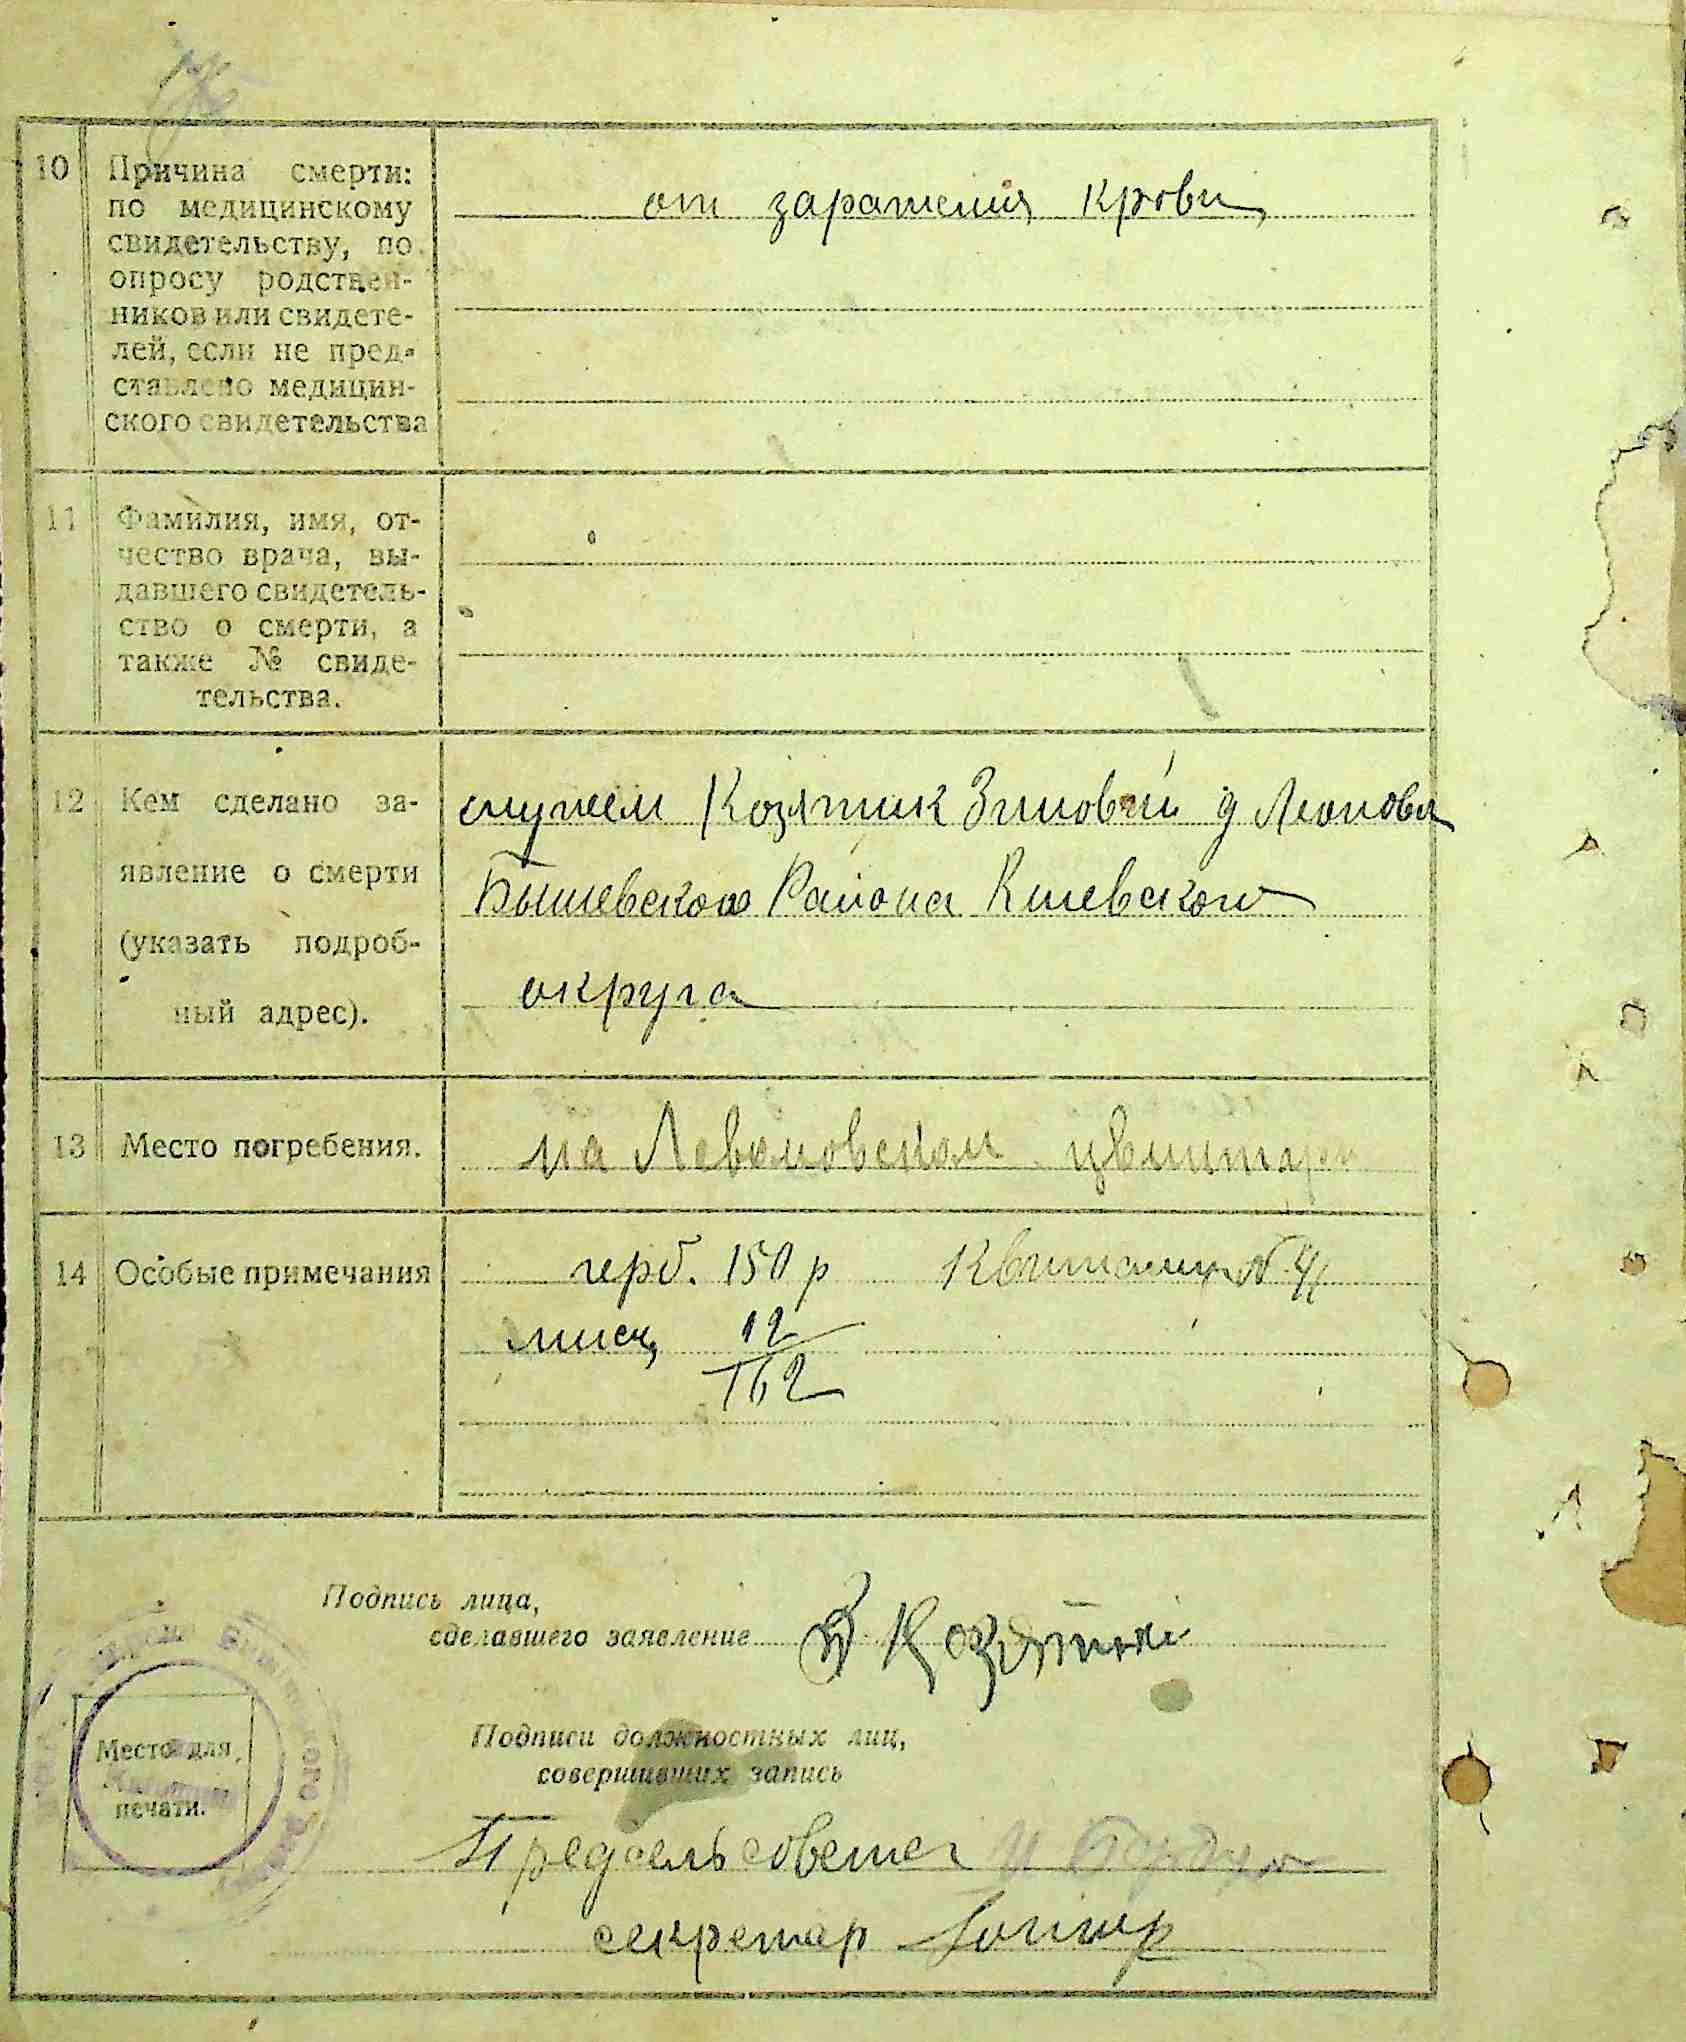 10 Причина смерти:
по медицинскому
свидетельству, по
опросу родствен-
ников или свидете-
лей, если не пред-
ставлено медицин-
ского свидетельства
от заражения крови
11 Фамилия, имя, от-
чество врача, вы-
давшего свидетель-
ство о смерти, а
также № свиде-
тельства.
12 Кем сделано за-
явление о смерти
(указать подроб-
ный адрес).
мужем Козятник Зиновий д Леоновка
Бышевского Района Киевского
округа
13 Место погребения.
на цвинтаре
14 Особые примечания
герб. 150 р Квитанция №
12
162
Подпись лица,
сделавшего заявление
Подписи должностных лиц,
совершивших запись
Место для
печати.
Предсельсовета
секретар